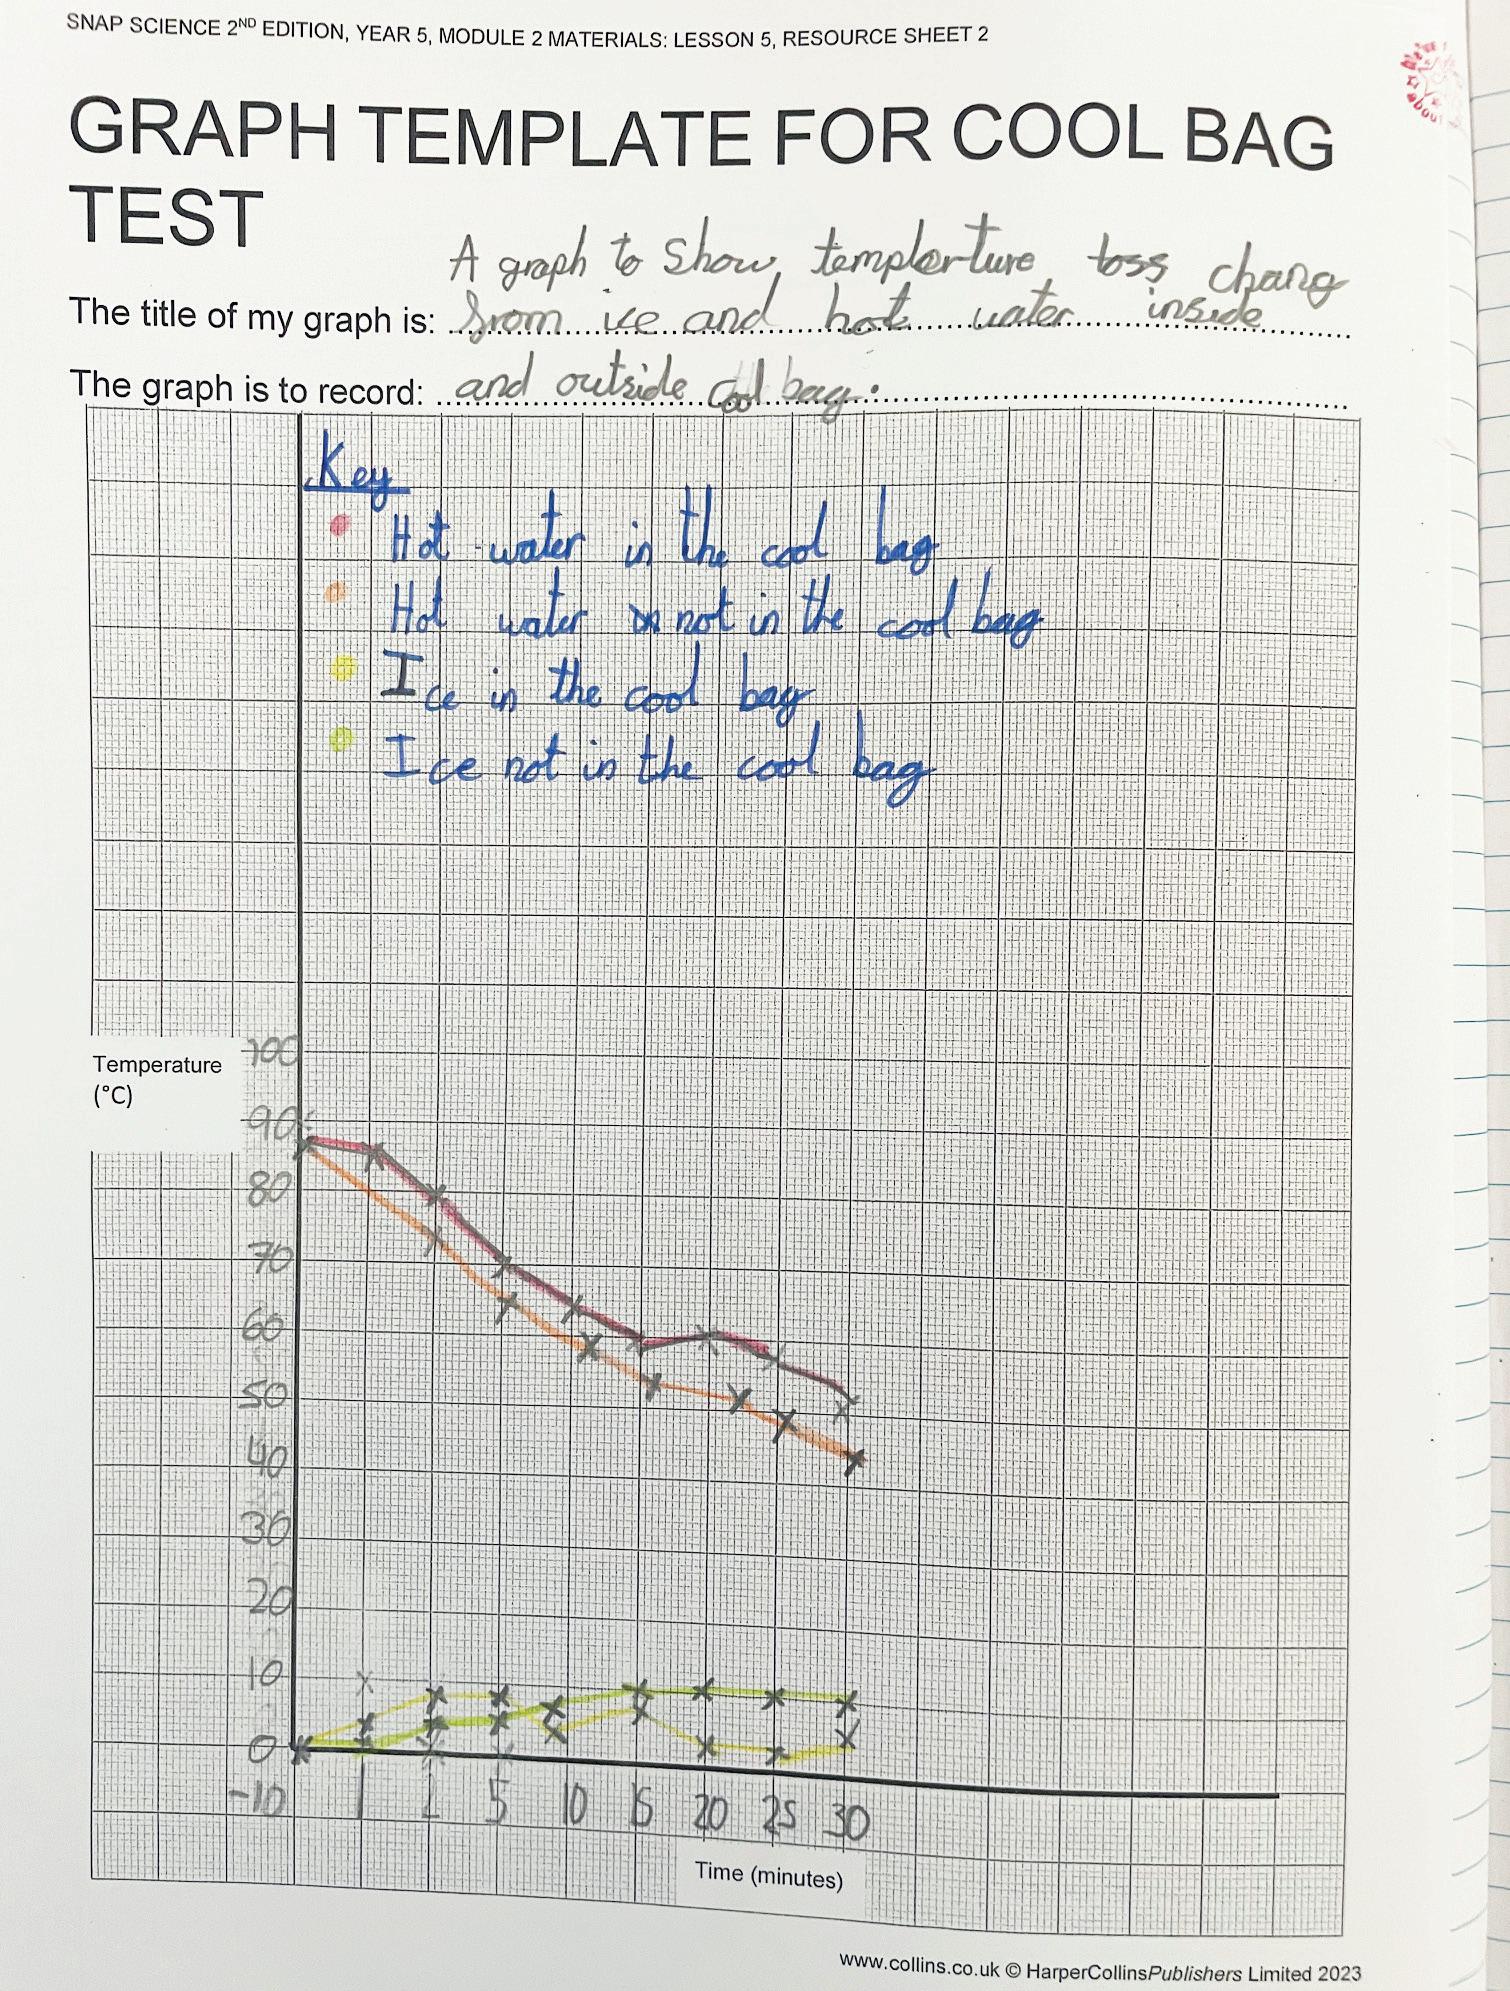 SNAP SCIENCE 2ND EDITION, YEAR 5, MODULE 2 MATERIALS: LESSON 5, RESOURCE SHEET 2
GRAPH TEMPLATE FOR COOL BAG
TEST
A graph to show, templerture, loss chang
The title of my graph is: from ice and hot water inside
The graph is to record: and outside cool bag.
Key
Hot water in the cool bag
Hot water in not in the cool bag
Ice in the cool bag
Ice not in the cool bag
100
Temperature
(°C)
90
80
70
60
50
40
30
20
10
0
-10 1 2 5 10 15 20 25 30
Time (minutes)
www.collins.co.uk © HarperCollinsPublishers Limited 2023